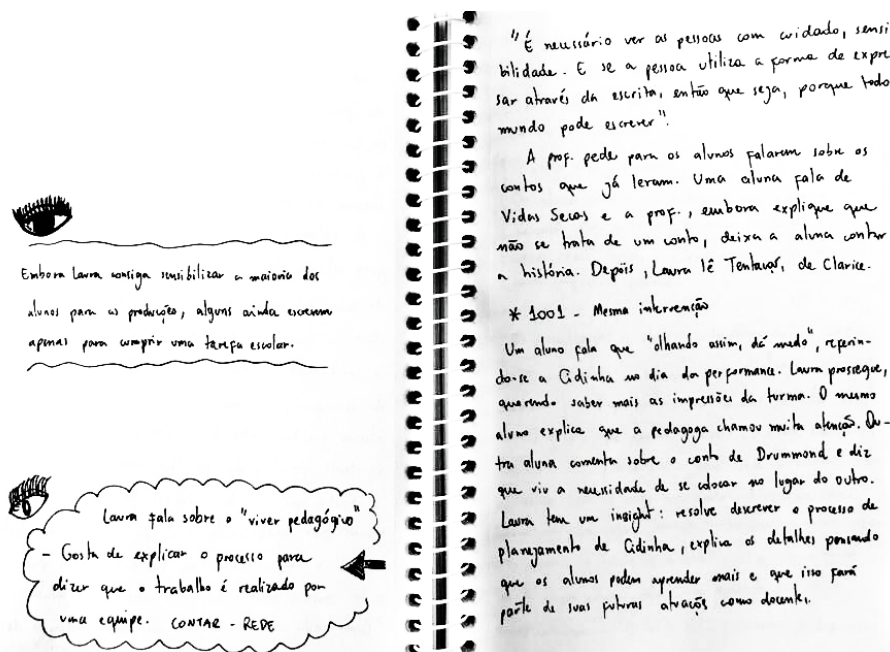 Embora Laura consiga sensibilizar a maioria dos
alunos para as produções, alguns ainda escrevem
apenas para cumprir uma tarefa escolar.
Laura fala sobre o "viver pedagógico"
- Gosta de explicar o processo para
dizer que o trabalho é realizado por
uma equipe. CONTAR - REDE
"É necessário ver as pessoas com cuidado, sensi
bilidade. E se a pessoa utiliza a forma de expre
sar através da escrita, então que seja, porque todo
mundo pode escrever".
A prof. pede para os alunos falarem sobre os
contos que já leram. Uma aluna fala de
Vidas Secas e a prof., embora explique que
não se trata de um conto, deixa a aluna contar
a história. Depois, Laura lê Tentação, de Clarice.
* 1001 - Mesma intervenção
Um aluno fala que "olhando assim, dá medo", referin-
do-se a Cidinha no dia da performance. Laura prossegue,
querendo saber mais as impressões da turma. O mesmo
aluno explica que a pedagoga chamou muita atenção. Ou-
tra aluna comenta sobre o conto de Drummond e diz
que viu a necessidade de se colocar no lugar do outro.
Laura tem um insight: resolve descrever o processo de
planejamento de Cidinha, explica os detalhes pensando
que os alunos podem aprender mais e que isso fará
parte de suas futuras atuações como docentes.